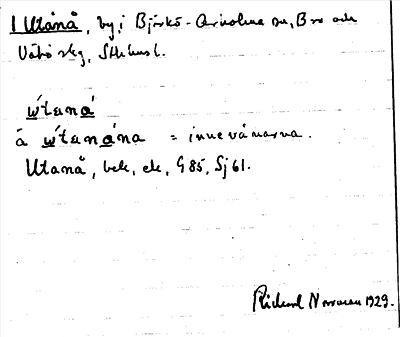 1 Utånå, by, i Björkö-Arholma sn, Bro och
Väddö skg, Sthlms l.
ẃtaná
á ẃtanána = innevånarna.
Utanå, bek, ek, G 85, Sj 61.
Rickard Norrman 1929.